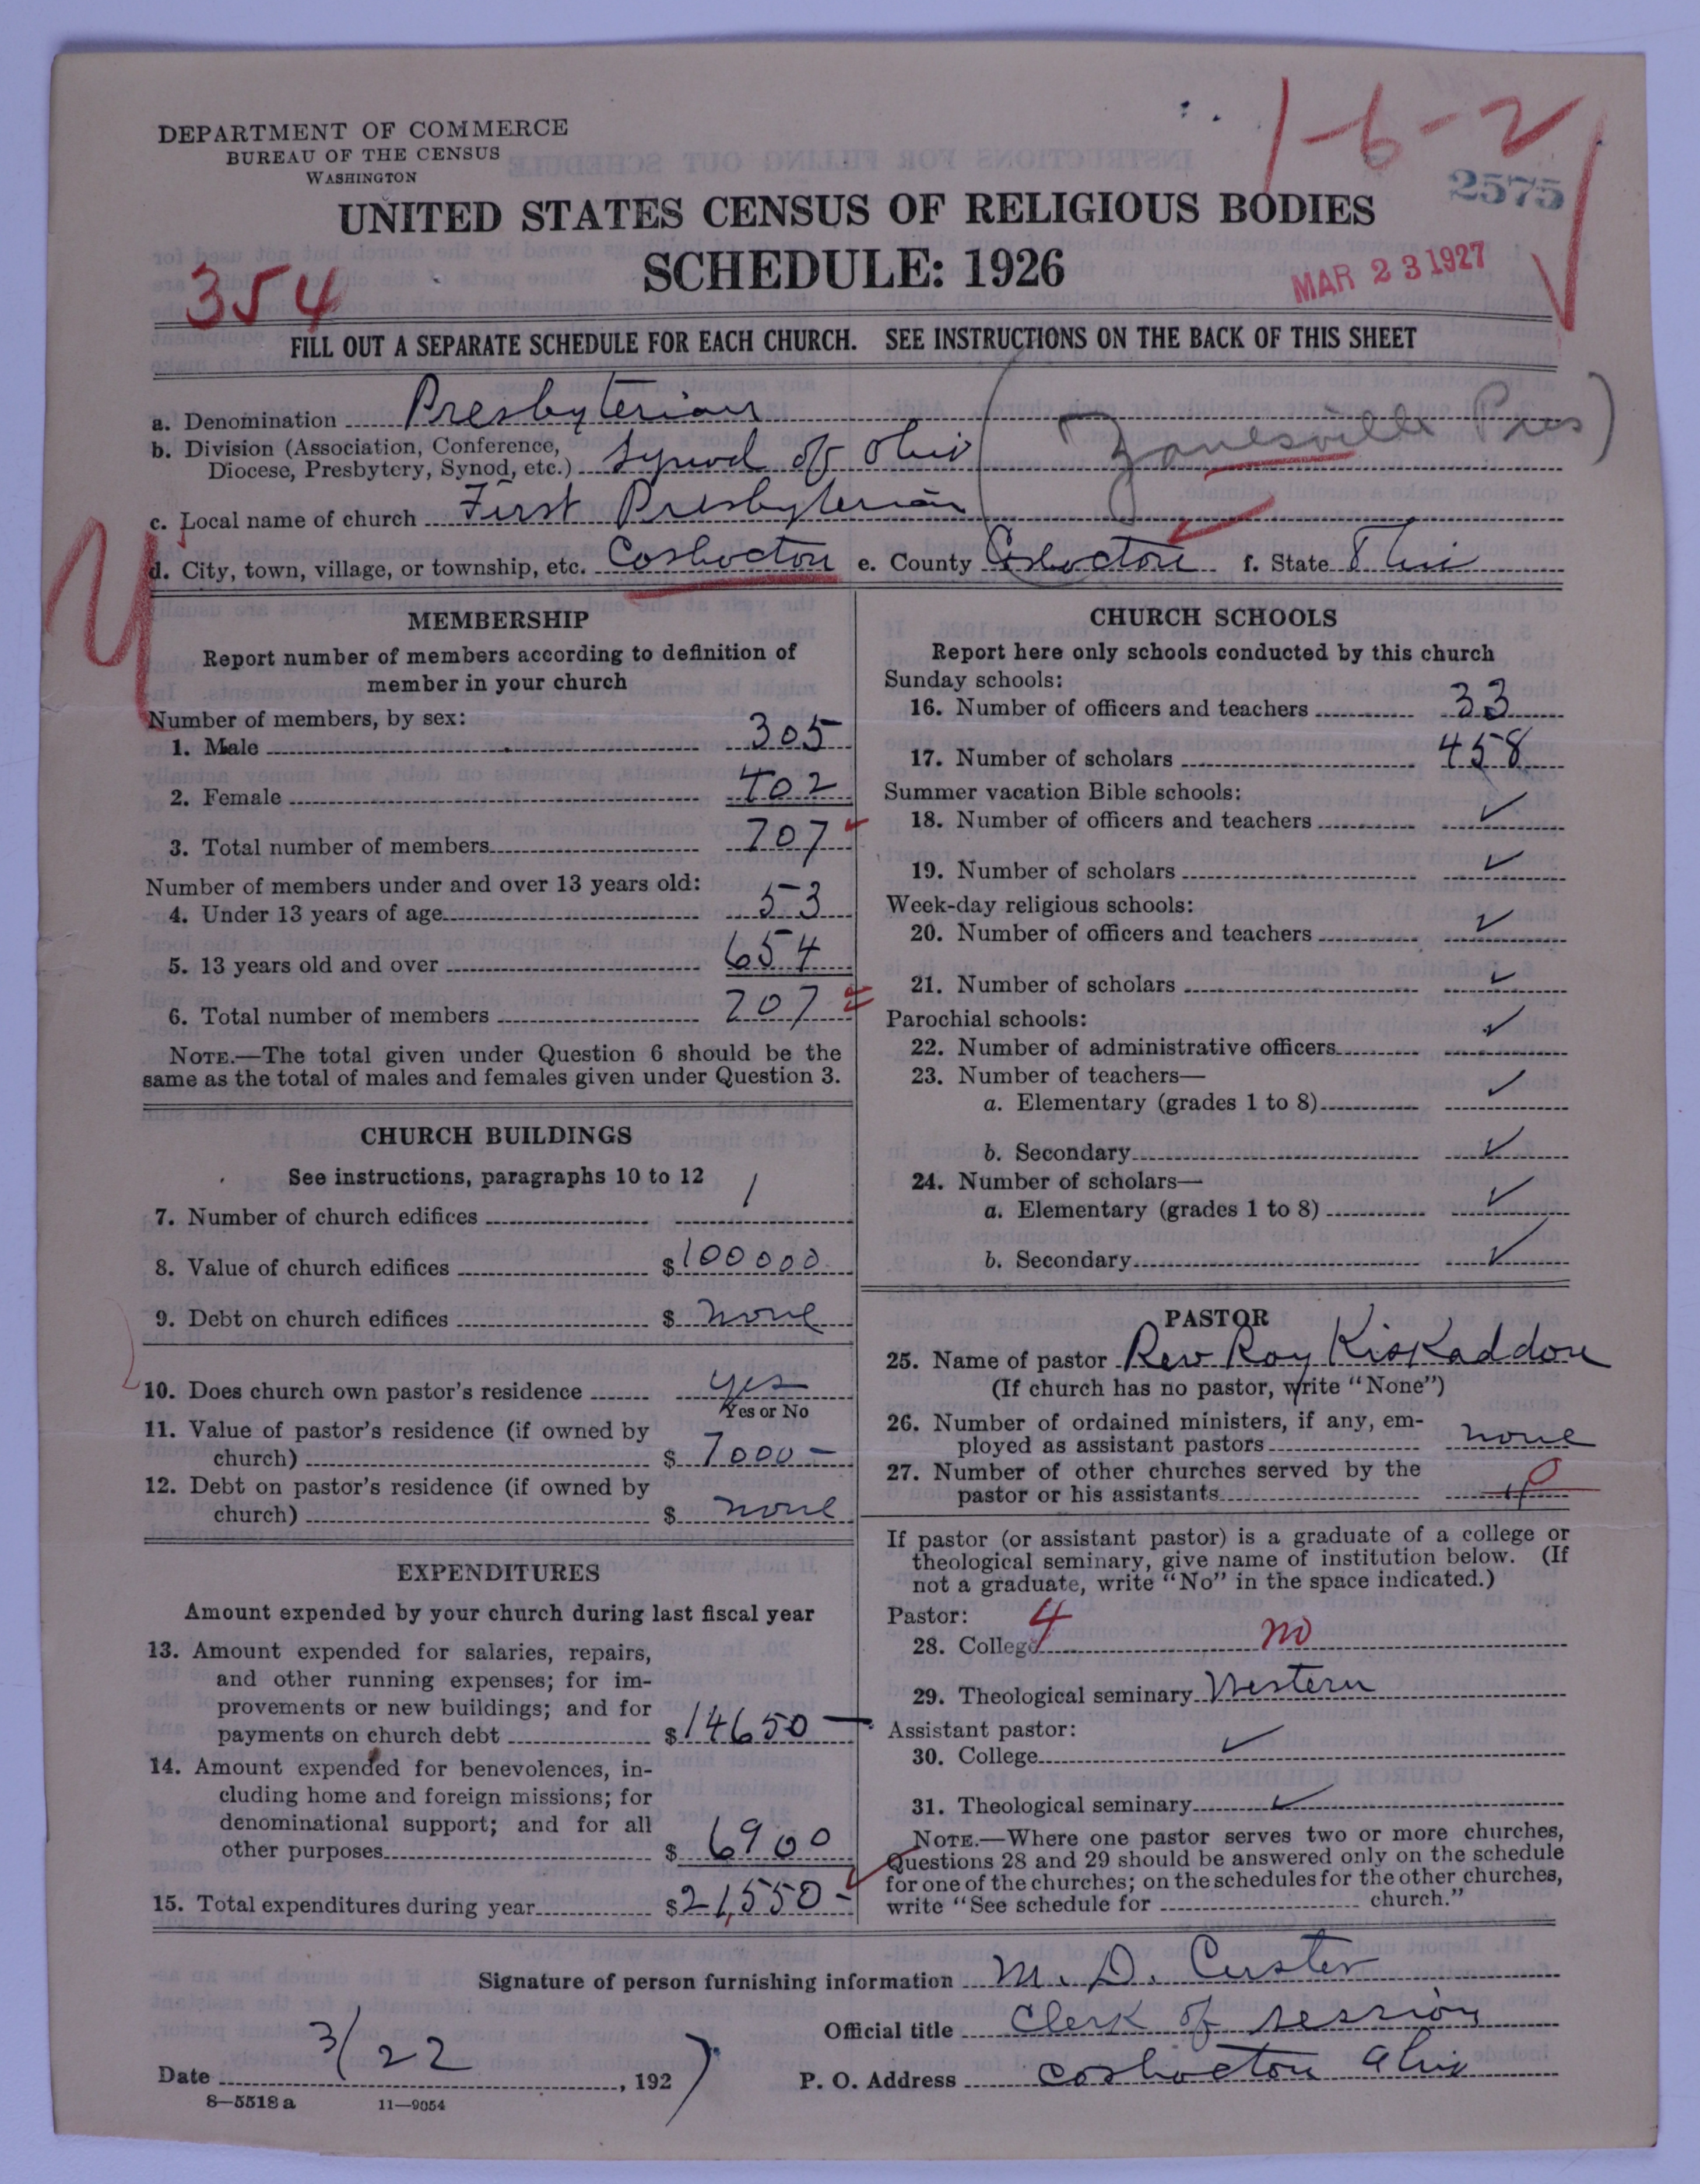 1-6-2
DEPARTMENT OF COMMERCE
BUREAU OF THE CENSUS
WASHINGTON
2575
UNITED STATES CENSUS OF RELIGIOUS BODIES
SCHEDULE: 1926
MAR 23 1927
354
FILL OUT A SEPARATE SCHEDULE FOR EACH CHURCH. SEE INSTRUCTIONS ON THE BACK OF THIS SHEET
a. Denomination Presbyterian
b. Division (Association, Conference,
Diocese, Presbytery, Synod, etc.) Synod of Ohio (Zanesville Pres)
c. Local name of church First Presbyterian
d. City, town, village, or township, etc. Coshocton e. County Coshocton f. State Ohio
MEMBERSHIP
Report number of members according to definition of
member in your church
Number of members, by sex:
1. Male 305
2. Female 402
3. Total number of members 707
Number of members under and over 13 years old:
4. Under 13 years of age 53
5. 13 years old and over 654
6. Total number of members 707
NOTE.—The total given under Question 6 should be the
same as the total of males and females given under Question 3.
CHURCH BUILDINGS
See instructions, paragraphs 10 to 12
7. Number of church edifices 1
8. Value of church edifices $100000
9. Debt on church edifices $ none
10. Does church own pastor's residence yes
Yes or No
11. Value of pastor's residence (if owned by
church) $ 7000-
12. Debt on pastor's residence (if owned by
church) $ none
EXPENDITURES
Amount expended by your church during last fiscal year
13. Amount expended for salaries, repairs,
and other running expenses; for im-
provements or new buildings; and for
payments on church debt $14650-
14. Amount expended for benevolences, in-
cluding home and foreign missions; for
denominational support; and for all
other purposes $ 6900
15. Total expenditures during year $21,550-
CHURCH SCHOOLS
Report here only schools conducted by this church
Sunday schools:
16. Number of officers and teachers 33
17. Number of scholars 458
Summer vacation Bible schools:
18. Number of officers and teachers ✓
19. Number of scholars ✓
Week-day religious schools:
20. Number of officers and teachers ✓
21. Number of scholars ✓
Parochial schools:
22. Number of administrative officers ✓
23. Number of teachers—
a. Elementary (grades 1 to 8) ✓
b. Secondary ✓
24. Number of scholars—
a. Elementary (grades 1 to 8) ✓
b. Secondary ✓
PASTOR
25. Name of pastor Rev Roy Kiskaddon
(If church has no pastor, write "None")
26. Number of ordained ministers, if any, em-
ployed as assistant pastors none
27. Number of other churches served by the
pastor or his assistants 0
If pastor (or assistant pastor) is a graduate of a college or
theological seminary, give name of institution below. (If
not a graduate, write "No" in the space indicated.)
Pastor: 4
28. College no
29. Theological seminary Western
Assistant pastor:
30. College ✓
31. Theological seminary ✓
NOTE.—Where one pastor serves two or more churches,
Questions 28 and 29 should be answered only on the schedule
for one of the churches; on the schedules for the other churches,
write "See schedule for church."
Signature of person furnishing information M. D. Custer
Official title Clerk of session
Date 3/22, 1927 P. O. Address Coshocton Ohio
8—5518 a 11—9054